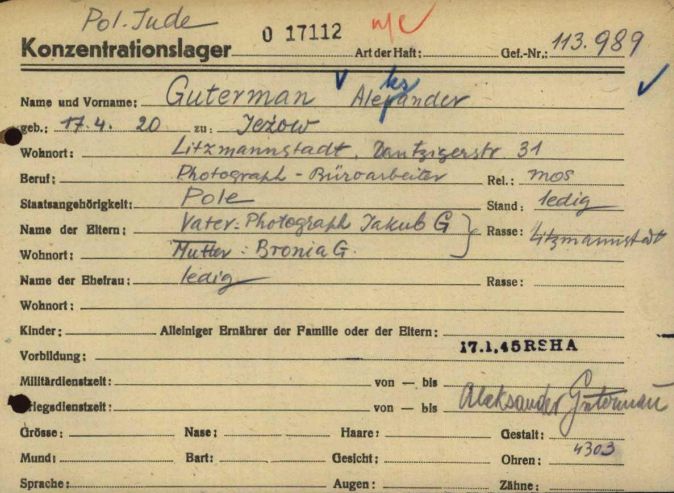 Pol. Jude
Konzentrationslager O 17112 n/c Art der Haft: Gef.-Nr.: 113.989
Name und Vorname: Guterman Aleksander
geb.: 17.4.20 zu: Jeżow
Wohnort: Litzmannstadt, Dantzigerstr. 31
Beruf: Photograph - Büroarbeiter Rel.: mos
Staatsangehörigkeit: Pole Stand: ledig
Name der Eltern: Vater: Photograph Jakub G Rasse: Litzmannstadt
Wohnort: Mutter: Bronia G.
Name der Ehefrau: ledig Rasse:
Wohnort:
Kinder: Alleiniger Ernährer der Familie oder der Eltern:
Vorbildung: 17.1.45 RSHA
Militärdienstzeit: von — bis
iegsdienstzeit: von — bis Aleksander Guterman
Grösse: Nase: Haare: Gestalt:
Mund: Bart: Gesicht: Ohren: 4303
Sprache: Augen: Zähne: